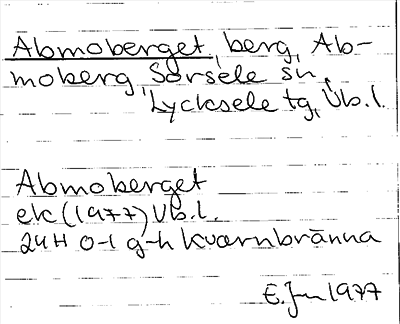 Abmoberget, berg, Ab-
moberg, Sorsele sn,
Lycksele tg, Vb.l.
Abmoberget
ek (1977) Vb.l.
24H 0-1 g-h Kvarnbränna
E.Jn 1977